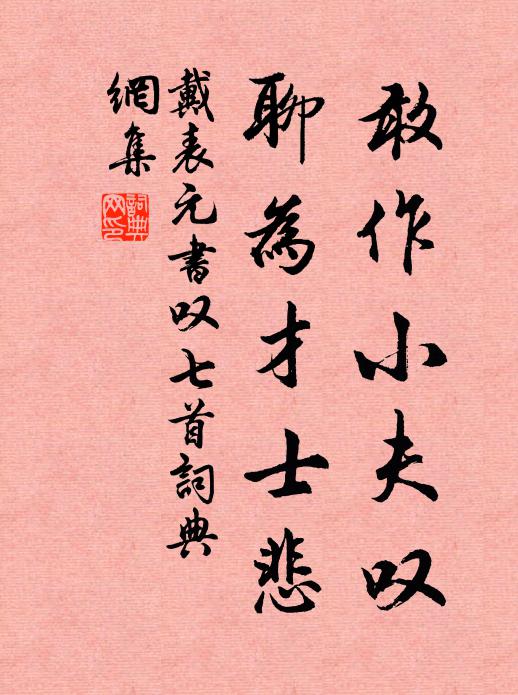 敢作小夫叹
聊為才士悲
戴表元書叹七首詞典
網集
詞典
网印